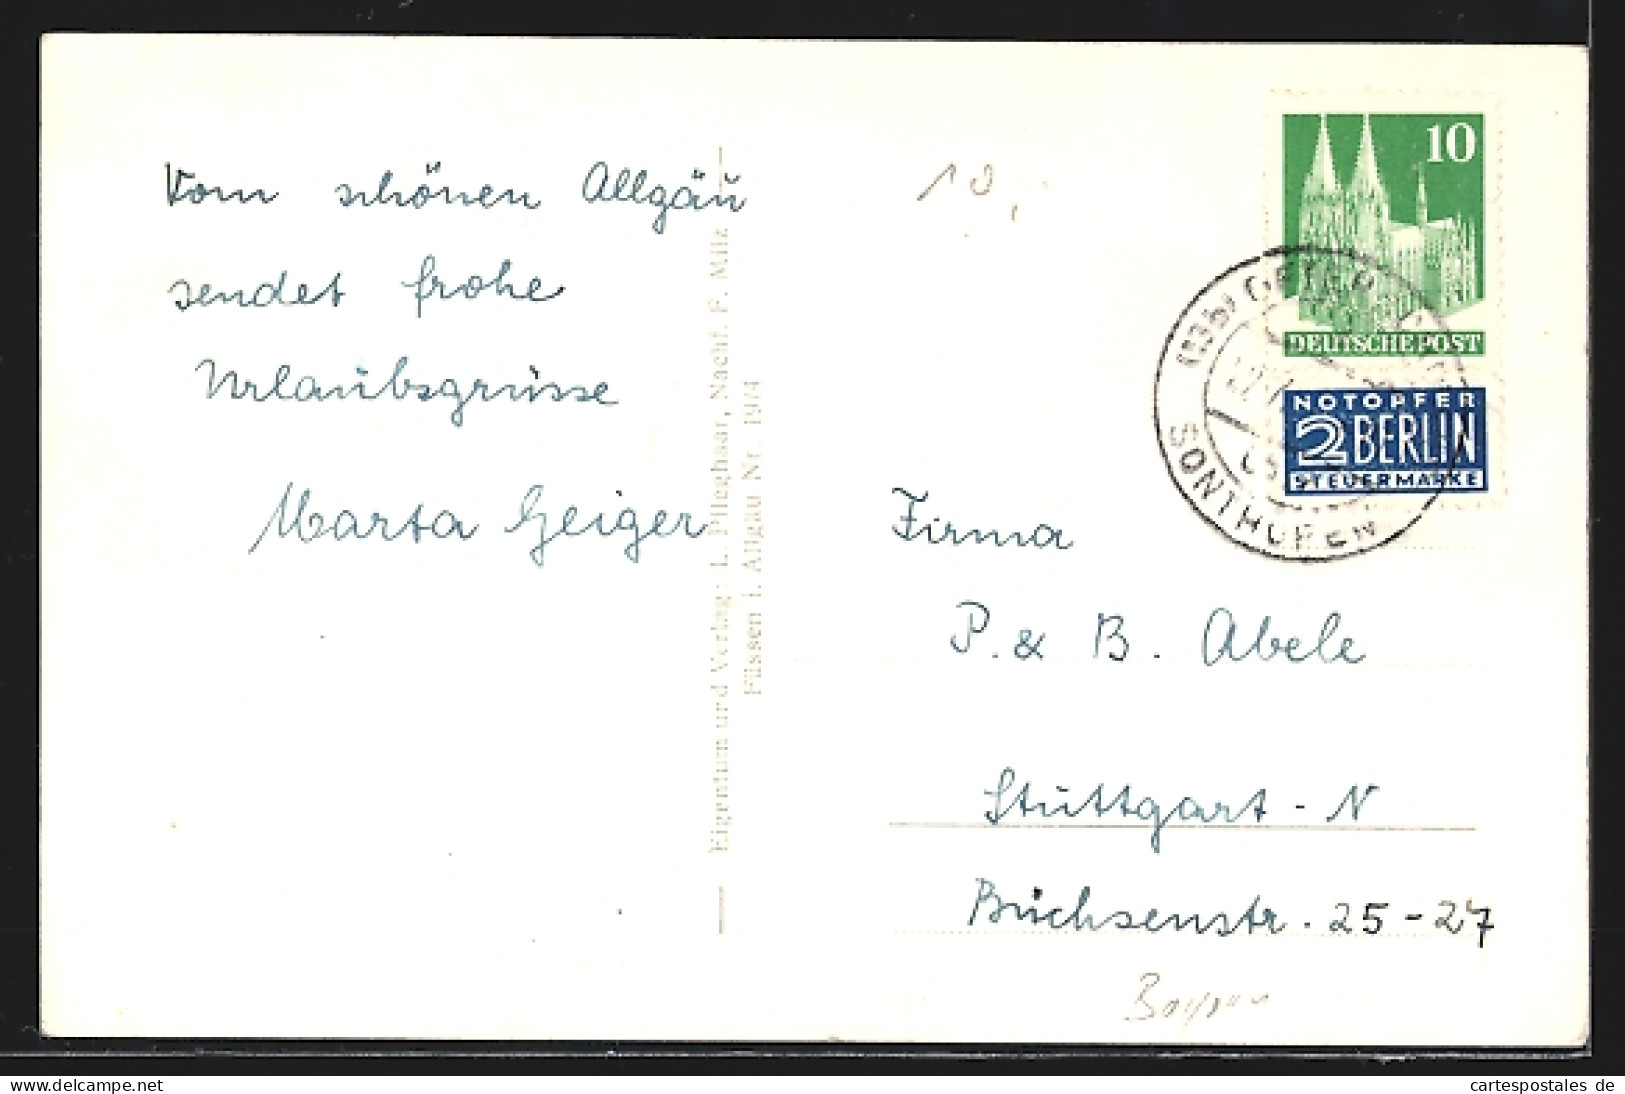 Vom schönen Allgäu
sendet frohe
Urlaubsgrüsse
Marta Geiger
Eigentum und Verlag: L. Pfleghaar, Nachf. F. Milz
Füssen i. Allgäu Nr. 1974
10
10
DEUTSCHE POST
NOTOPFER
2 BERLIN
STEUERMARKE
(13b)
SONTHOFEN
Firma
P. & B. Abele
Stuttgart - N
Büchsenstr. 25-27
Bayern
liveinternet
cartespostales de